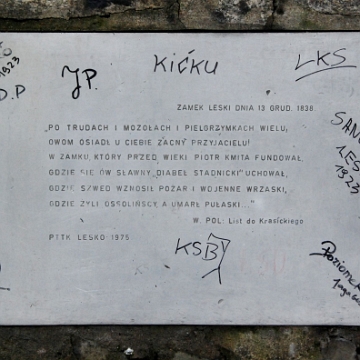 1923
D.P
JP.
KIĆKU
LKS
ZAMEK LESKI DNIA 13 GRUD. 1838.
„PO TRUDACH I MOZOŁACH I PIELGRZYMKACH WIELU,
OWOM OSIADŁ U CIEBIE ZACNY PRZYJACIELU!
W ZAMKU, KTÓRY PRZED WIEKI PIOTR KMITA FUNDOWAŁ,
GDZIE SIĘ ÓW SŁAWNY „DIABEŁ STADNICKI” UCHOWAŁ,
GDZIE SZWED WZNOSIŁ POŻAR I WOJENNE WRZASKI,
GDZIE ŻYLI OSSOLIŃSCY, A UMARŁ PUŁASKI...”
W. POL: List do Krasickiego
PTTK LESKO 1975.
KSB
SAN
LES
1923
Poziomek